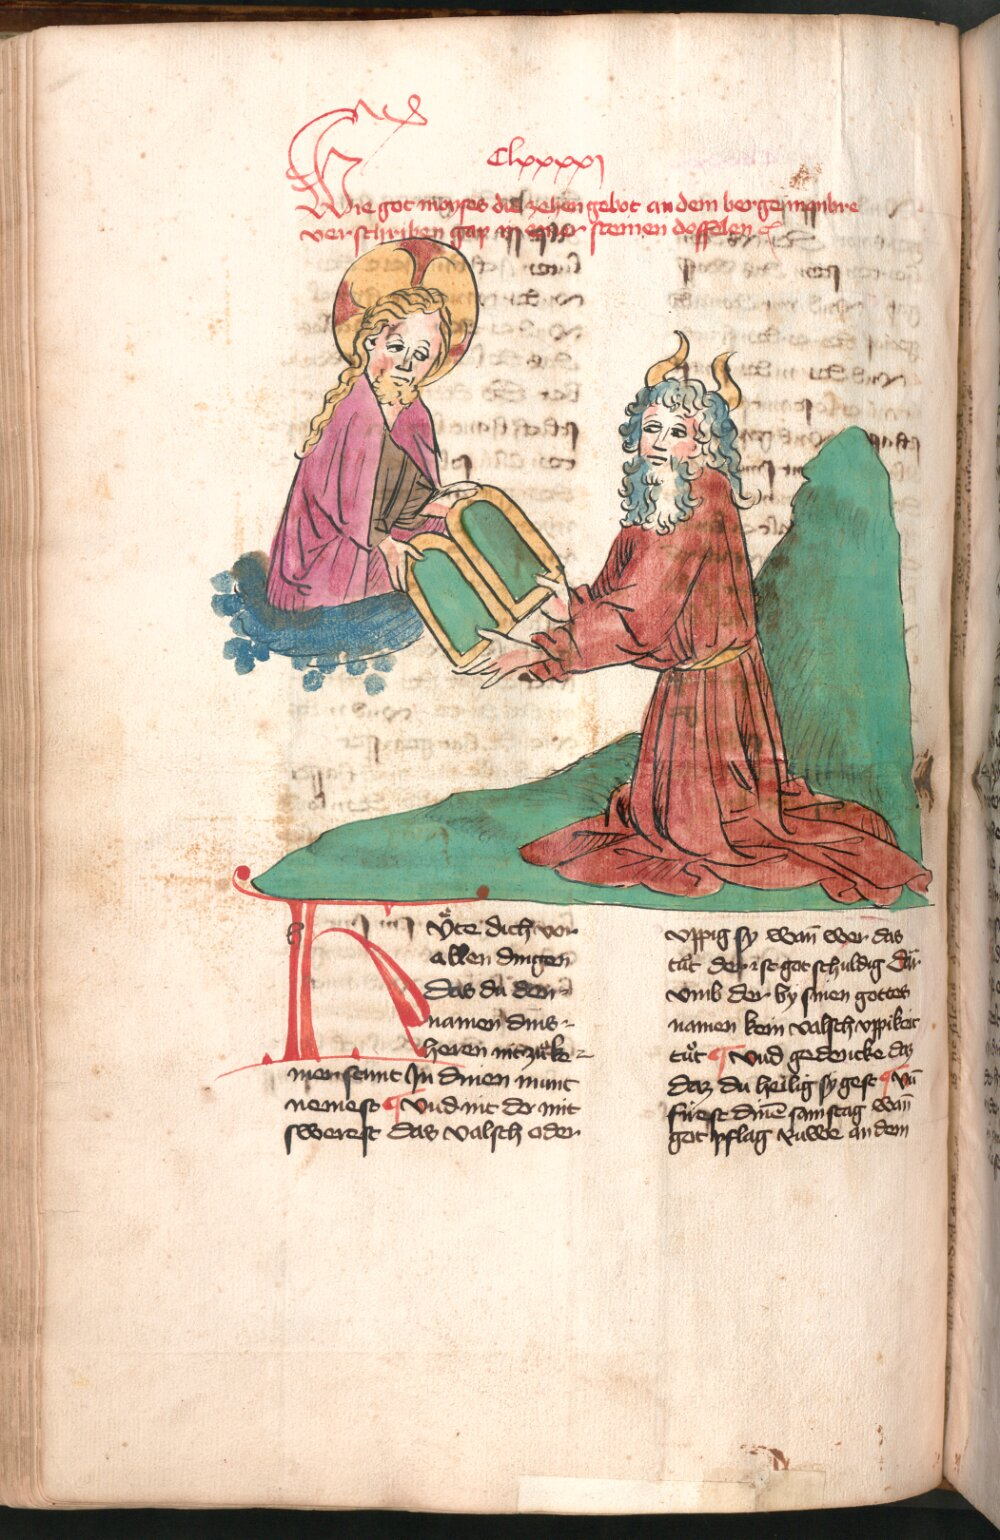 Clxxxxj
Wie got moyses die zehen gebot an dem berge
verschriben gap steinen doffelen
Hüte dich vor
allen dingen
das du den
namen dins
heren nit zü ke
men sennt In dinen munt
nemest ¶ Vnd nit do mit
swerest das valsch oder
vppig sy wan̄ wer das
tüt der ist got schuldig Dar
vmb der by sinen gottes
namen kein valsch vppikeit
tüt ¶ Vnd gedencke das
daz du heilig sygest ¶ Vn̄
firest dinē samstag wan̄
got pflag ruwe an dem